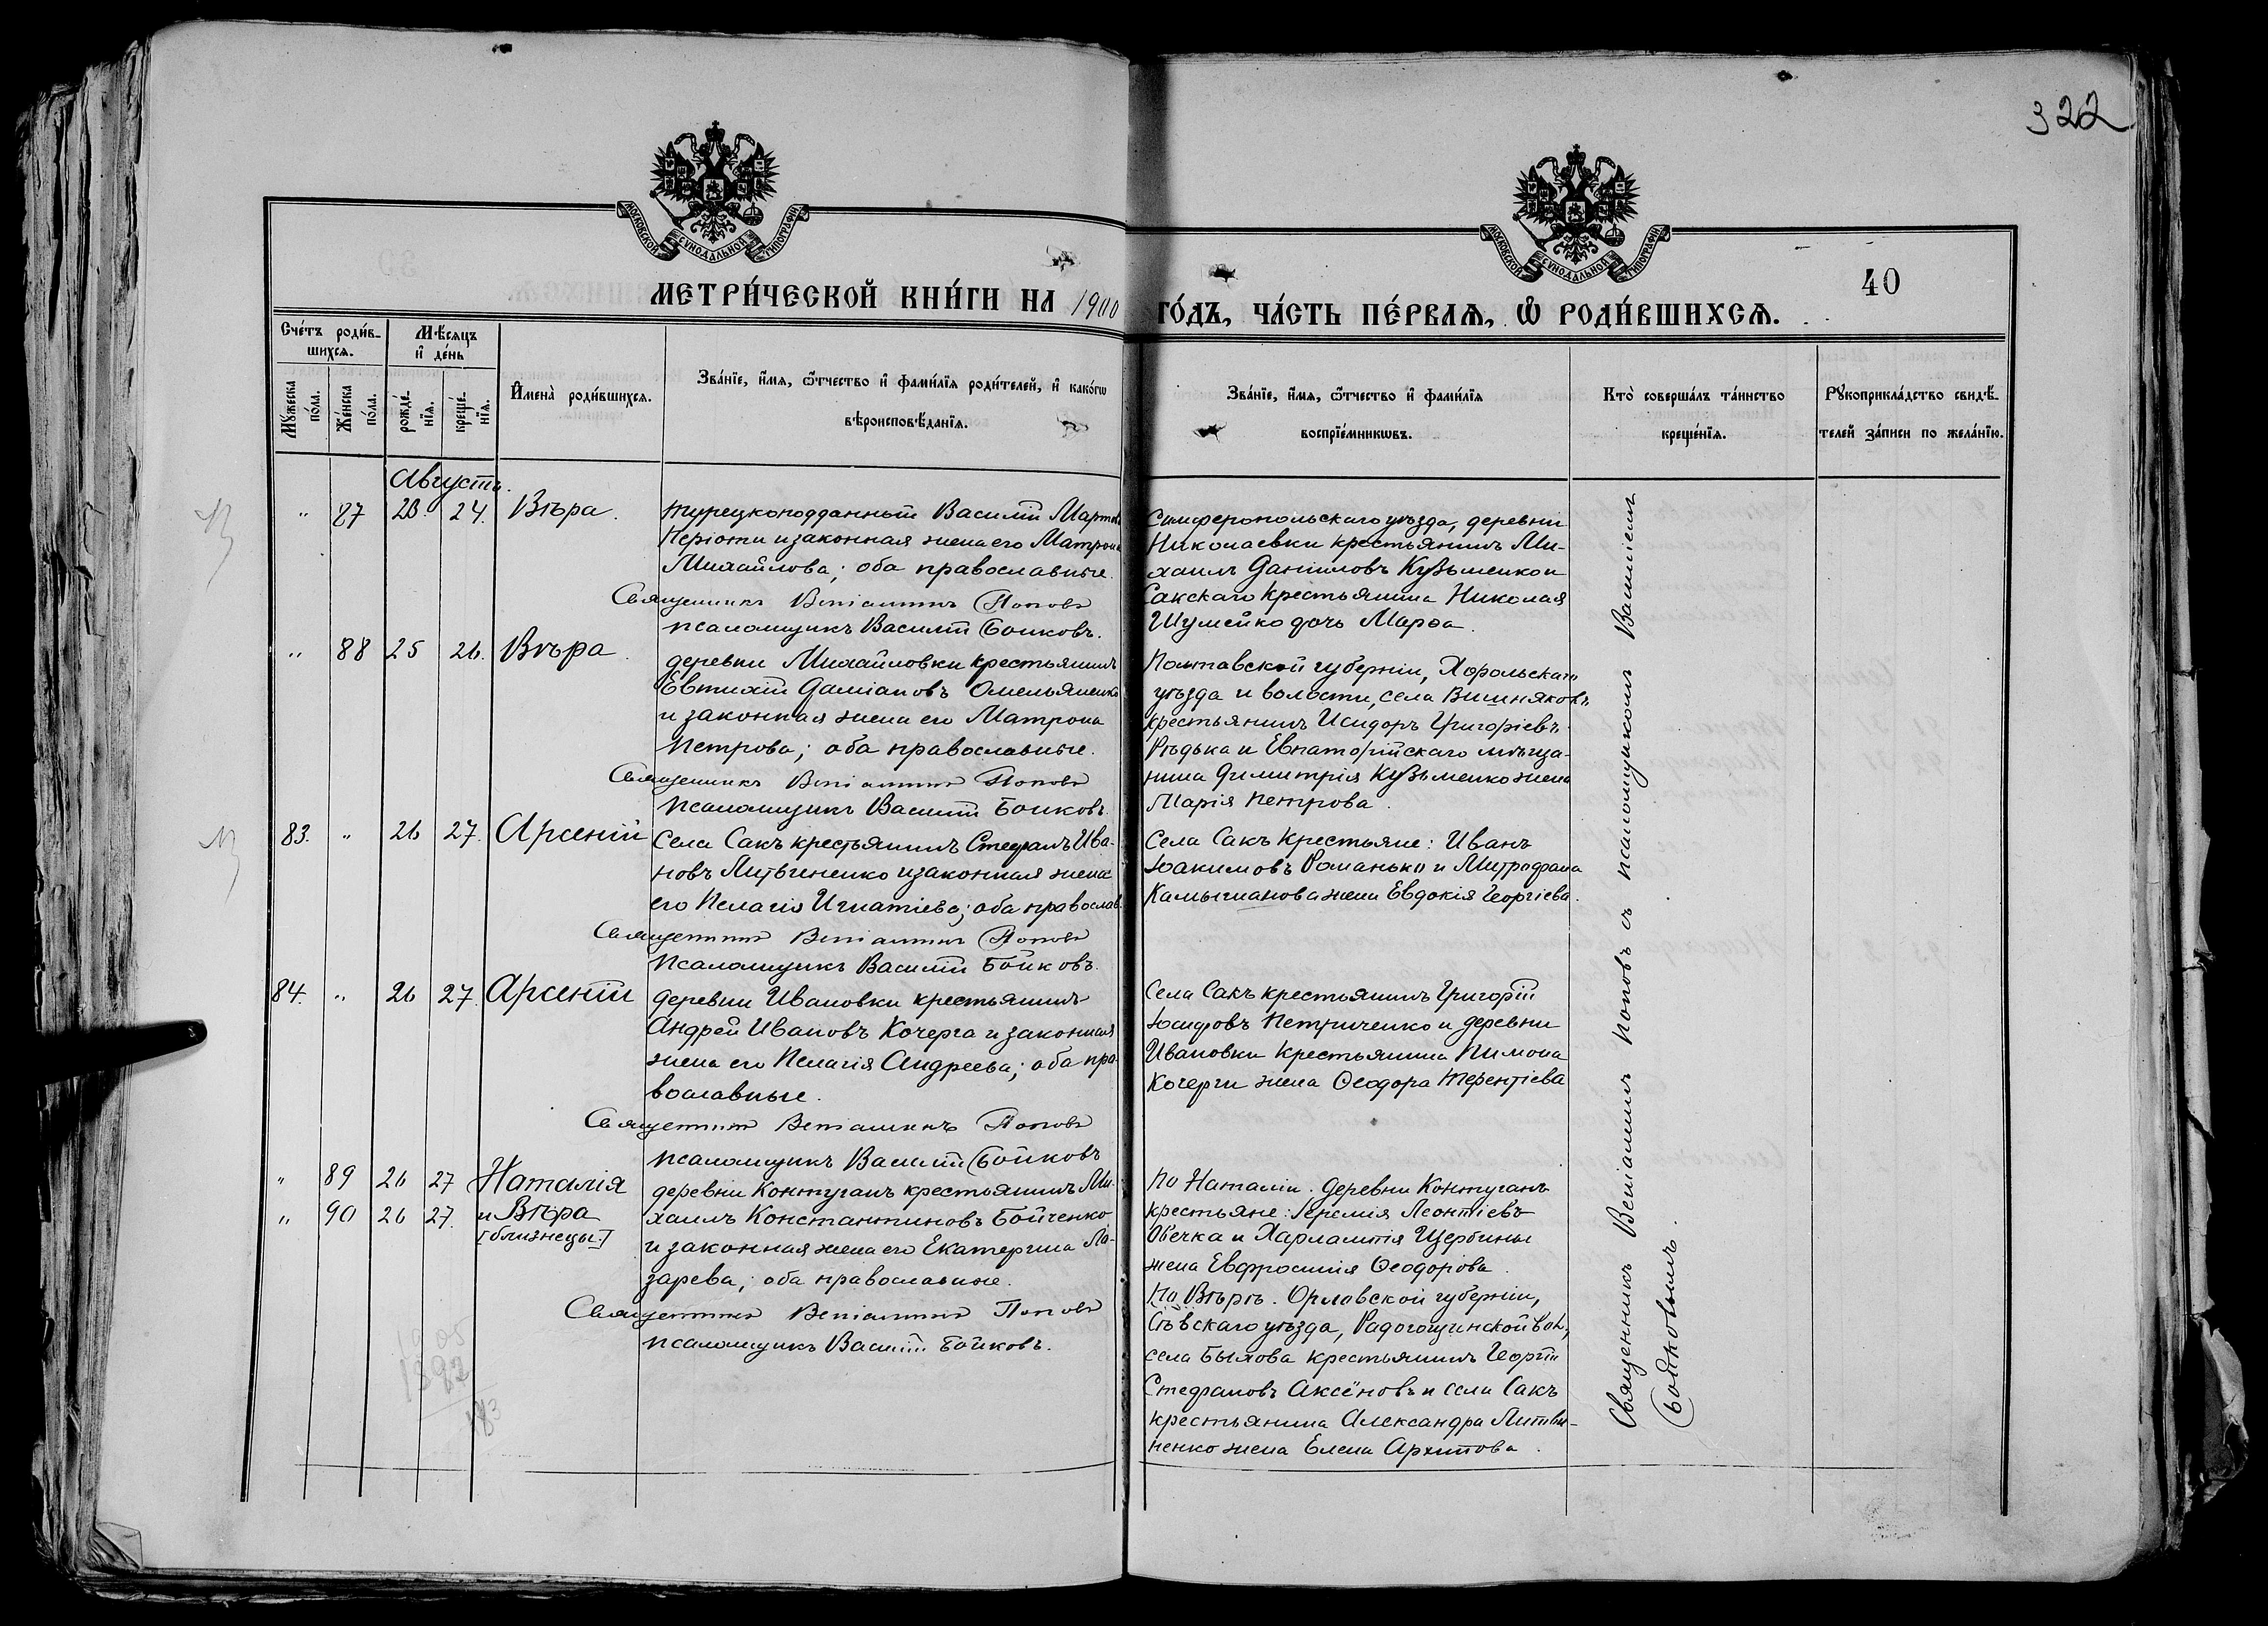 322
МОСКОВСКОЙ СУНОДАЛЬНОЙ ТИПОГРАФІИ
МОСКОВСКОЙ СУНОДАЛЬНОЙ ТИПОГРАФІИ
40
МЕТРИ́ЧЕСКОЙ КНИ́ГИ НА 1900 ГО́ДЪ, ЧА́СТЬ ПЕ́РВАѦ, Ѡ҆ РОДИ́ВШИХСѦ.
Сче́тъ роди́в-
шихсѧ.
Мѣ́сѧцъ
и҆ де́нь
Мꙋ́жеска
по́ла.
Же́нска
по́ла.
рожде́-
нїѧ.
креще́-
нїѧ.
И҆мена̀ роди́вшихсѧ.
Зва́нїе, и҆́мѧ, ѻ҆́тчество и҆ фами́лїѧ роди́телей, и҆ како́гѡ
вѣроисповѣ́данїѧ.
Зва́нїе, и҆́мѧ, ѻ҆́тчество и҆ фами́лїѧ
воспрїе́мникѡвъ.
Кто̀ соверша́лъ та́инство
креще́нїѧ.
Рꙋкоприкла́дство свидѣ́-
телей за́писи по жела́нїю.
Августъ.
" 87 23. 24. Вѣра.
турецкоподданный Василій
и законная жена его Матрона
Михайлова; оба православные.
Священникъ Веніаминъ Поповъ
псаломщикъ Василій Бойковъ.
Симферопольскаго уѣзда, деревни
Николаевки крестьянинъ Ми-
хаилъ Даніиловъ Кузьменко и
Сакскаго крестьянина Николая
Шумейко дочь Марѳа.
" 88 25 26. Вѣра.
деревни Михайловки крестьянинъ
Евтихій Даміановъ Омельяненко
и законная жена его Матрона
Петрова; оба православные.
Священникъ Веніаминъ Поповъ
Псаломщикъ Василій Бойковъ.
Полтавской губерніи, Хорольскаго
уѣзда и волости, села Вишняковъ
крестьянинъ Исидоръ Григоріевъ
Рѣдька и Евпаторійскаго мѣща-
нина Димитрія Кузьменко жена
Марія Петрова.
83. " 26 27. Арсеній
Села Сакъ крестьянинъ Стефанъ Ива-
новъ Литвиненко и законная жена
его Пелагія Игнатіева; оба православ.
Священникъ Веніаминъ Поповъ
Псаломщикъ Василій Бойковъ.
Села Сакъ крестьяне: Иванъ
Іоакимовъ Романько и Митрофана
Камышанова жена Евдокія Георгіева.
84. " 26 27. Арсеній
деревни Ивановки крестьянинъ
Андрей Ивановъ Кочерга и законная
жена его Пелагія Андреева; оба пра-
вославные.
Священникъ Веніаминъ Поповъ
псаломщикъ Василій Бойковъ
Села Сакъ крестьянинъ Григорій
Іосифовъ Петриченко и деревни
Ивановки крестьянина Пимона
Кочерги жена Ѳеодора Терентіева
" 89 26 27 Наталія
" 90 26 27. и Вѣра
[близнецы]
деревни Контуганъ крестьянинъ Ми-
хаилъ Константиновъ Бойченко
и законная жена его Екатерина Ла-
зарева; оба православные.
Священникъ Веніаминъ Поповъ
псаломщикъ Василій Бойковъ.
По Наталіи. деревни Контуганъ
крестьяне: Іеремія Леонтіевъ
Овечка и Харлампія Щербины
жена Евфросинія Ѳеодорова.
По Вѣрѣ. Орловской губерніи,
Сѣвскаго уѣзда, Радогощинской вол.,
села Быхова крестьянинъ Георгій
Стефановъ Аксёновъ и села Сакъ
крестьянина Александра Литви-
ненко жена Елена Архипова.
Священникъ Веніаминъ Поповъ съ псаломщикомъ Василіемъ
Бойковымъ.
1905
183